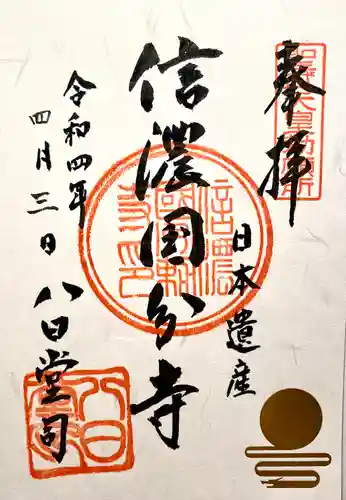 奉拝
日本遺産
信濃国分寺
令和四年
四月三日
八日堂司